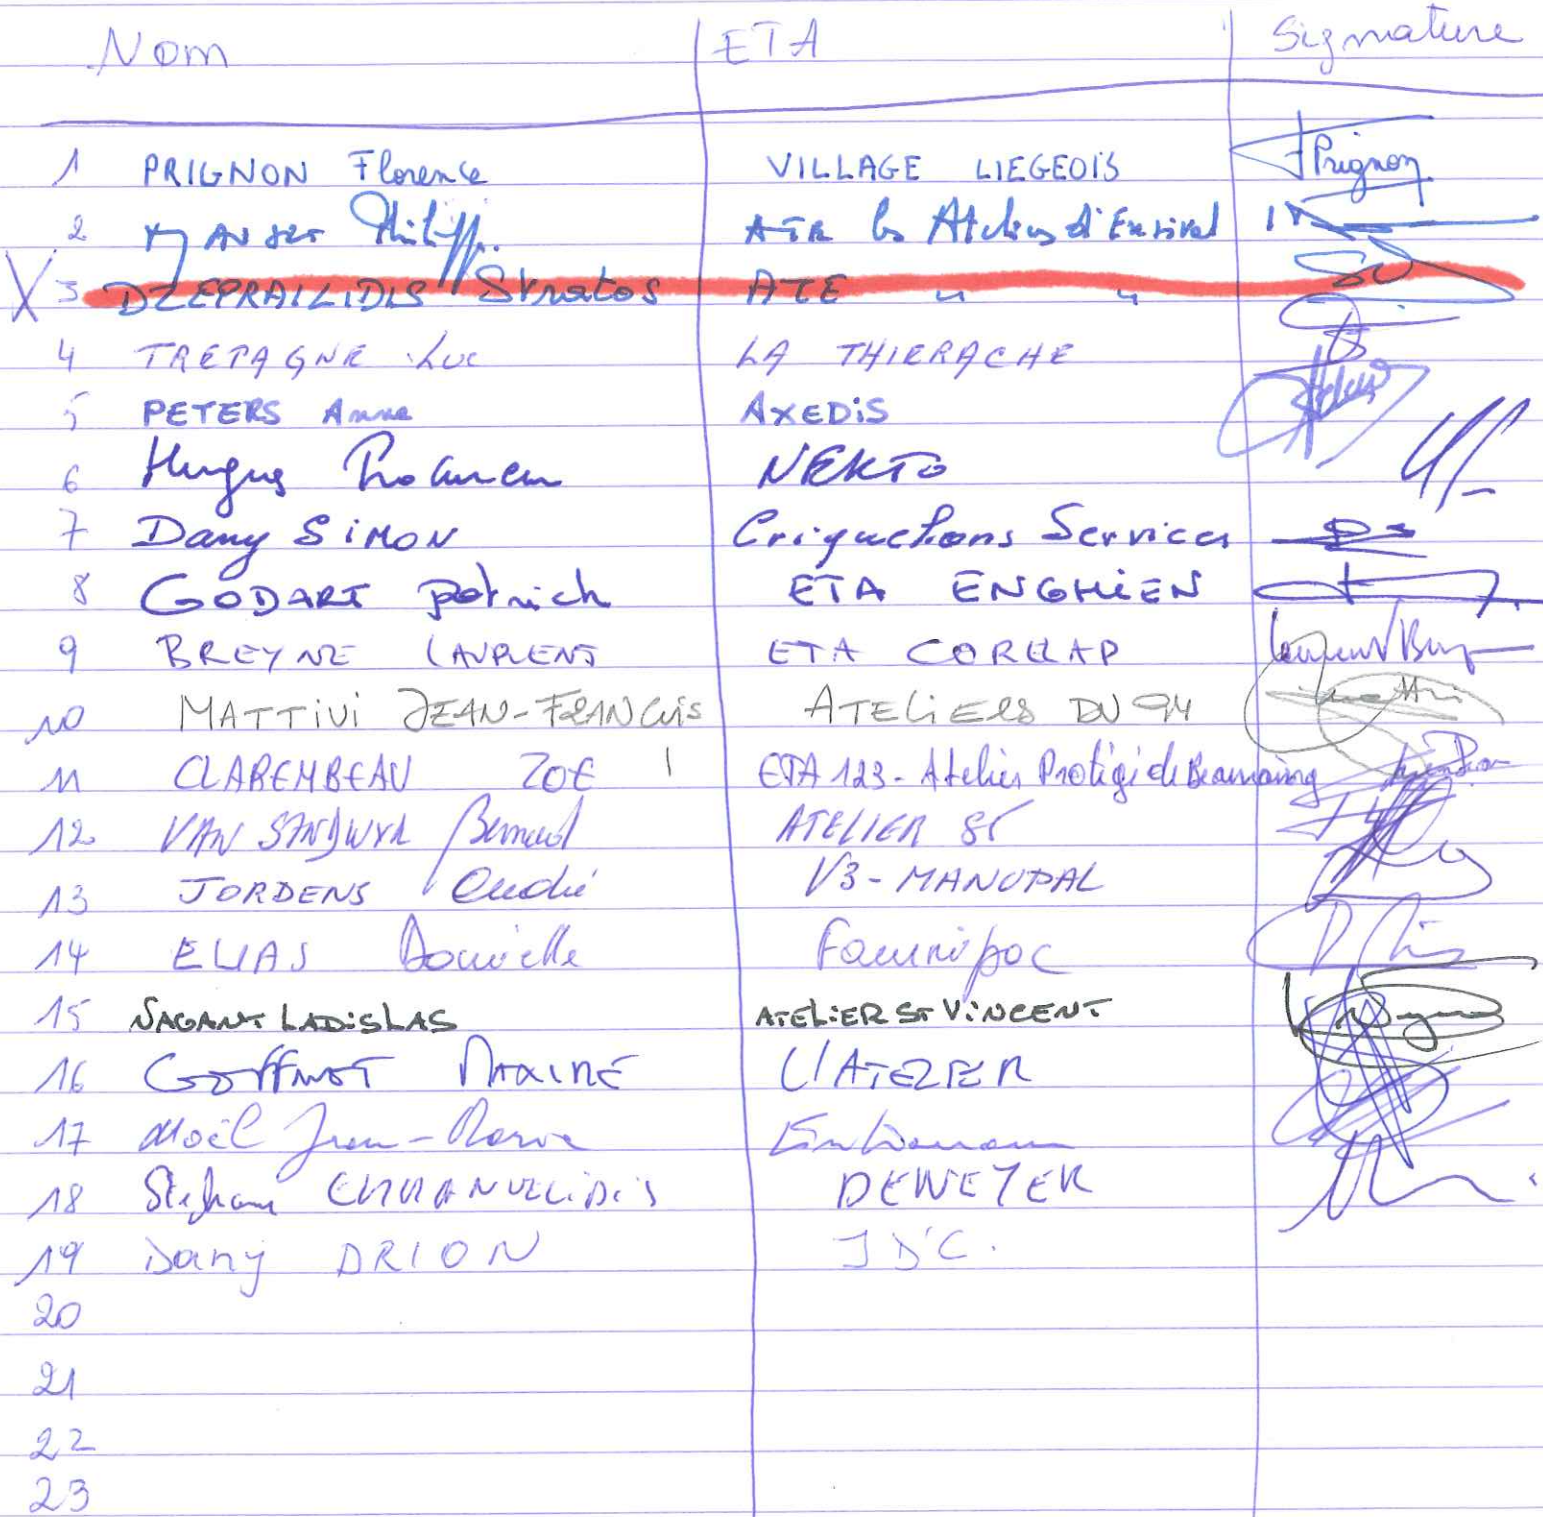 Nom ETA Signature
1 PRIGNON Florence VILLAGE LIEGEOIS FPrignon
2 Philippe ATR les Ateliers d'Ensival
X 3 DZEPRAILIDIS Stratos ATE " "
4 TRETAGNE Luc LA THIERACHE
5 PETERS Anne AXEDIS
6 Hugues NEKTO
7 Dany SIMON Criquelions Services DS
8 GODART patrick ETA ENGHIEN
9 BREYNE LAURENT ETA CORELAP
10 MATTIVI JEAN-FRANCOIS ATELIERS DU 94
11 CLAREMBEAU ZOE ETA 123 - Atelier Protégé de Beauraing
12 VAN SANDWYK Bernard ATELIER 85
13 JORDENS André V3 - MANUPAL
14 ELIAS Danielle Famipoc
15 NAGANT LADISLAS ATELIER ST VINCENT
16 GOFFINET MAXIME L'ATELIER
17 Noël Jean-Marie
18 Stéphane EMMANUELIDIS DEWEYER
19 Dany DRION JD'C.
20
21
22
23